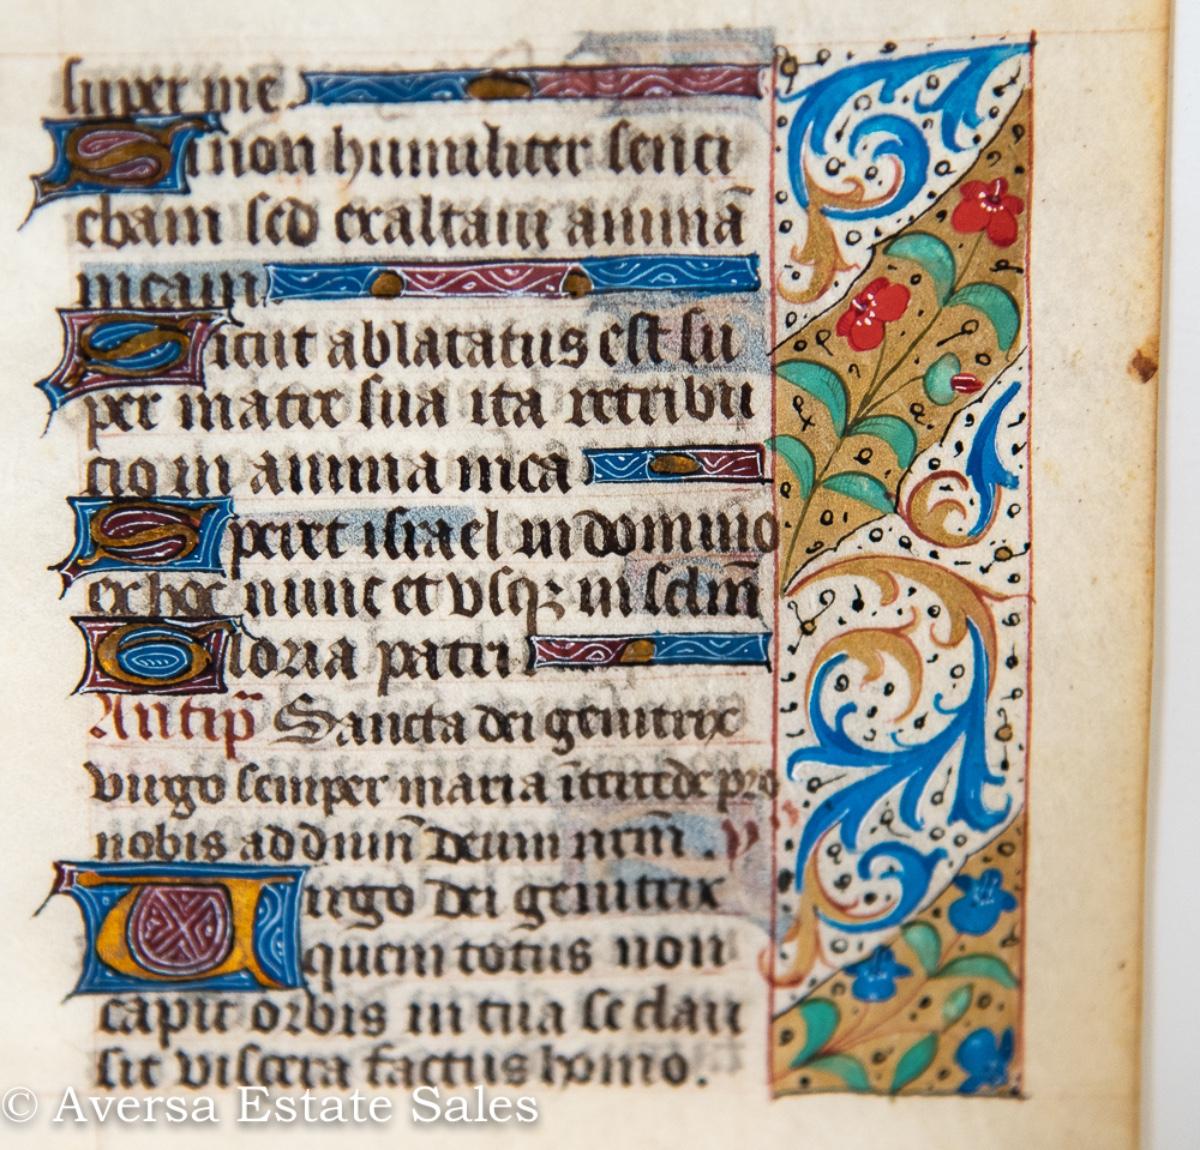 super me
Si non humiliter senti
ebam sed exaltaui animā
meam
Sicut ablatatus est su
per matre sua ita retribu
cio in anima mea
Speret israel in domino
ex hoc nunc et vsqꝫ in sclm̄
Gloria patri
Antip̄ Sancta dei genitrix
virgo semper maria ītercede pro
nobis ad dnm̄ deum nrm̄ . v
Uirgo dei genitrix
quem totus non
capit orbis in tua se clau
sit viscera factus homo .
© Aversa Estate Sales